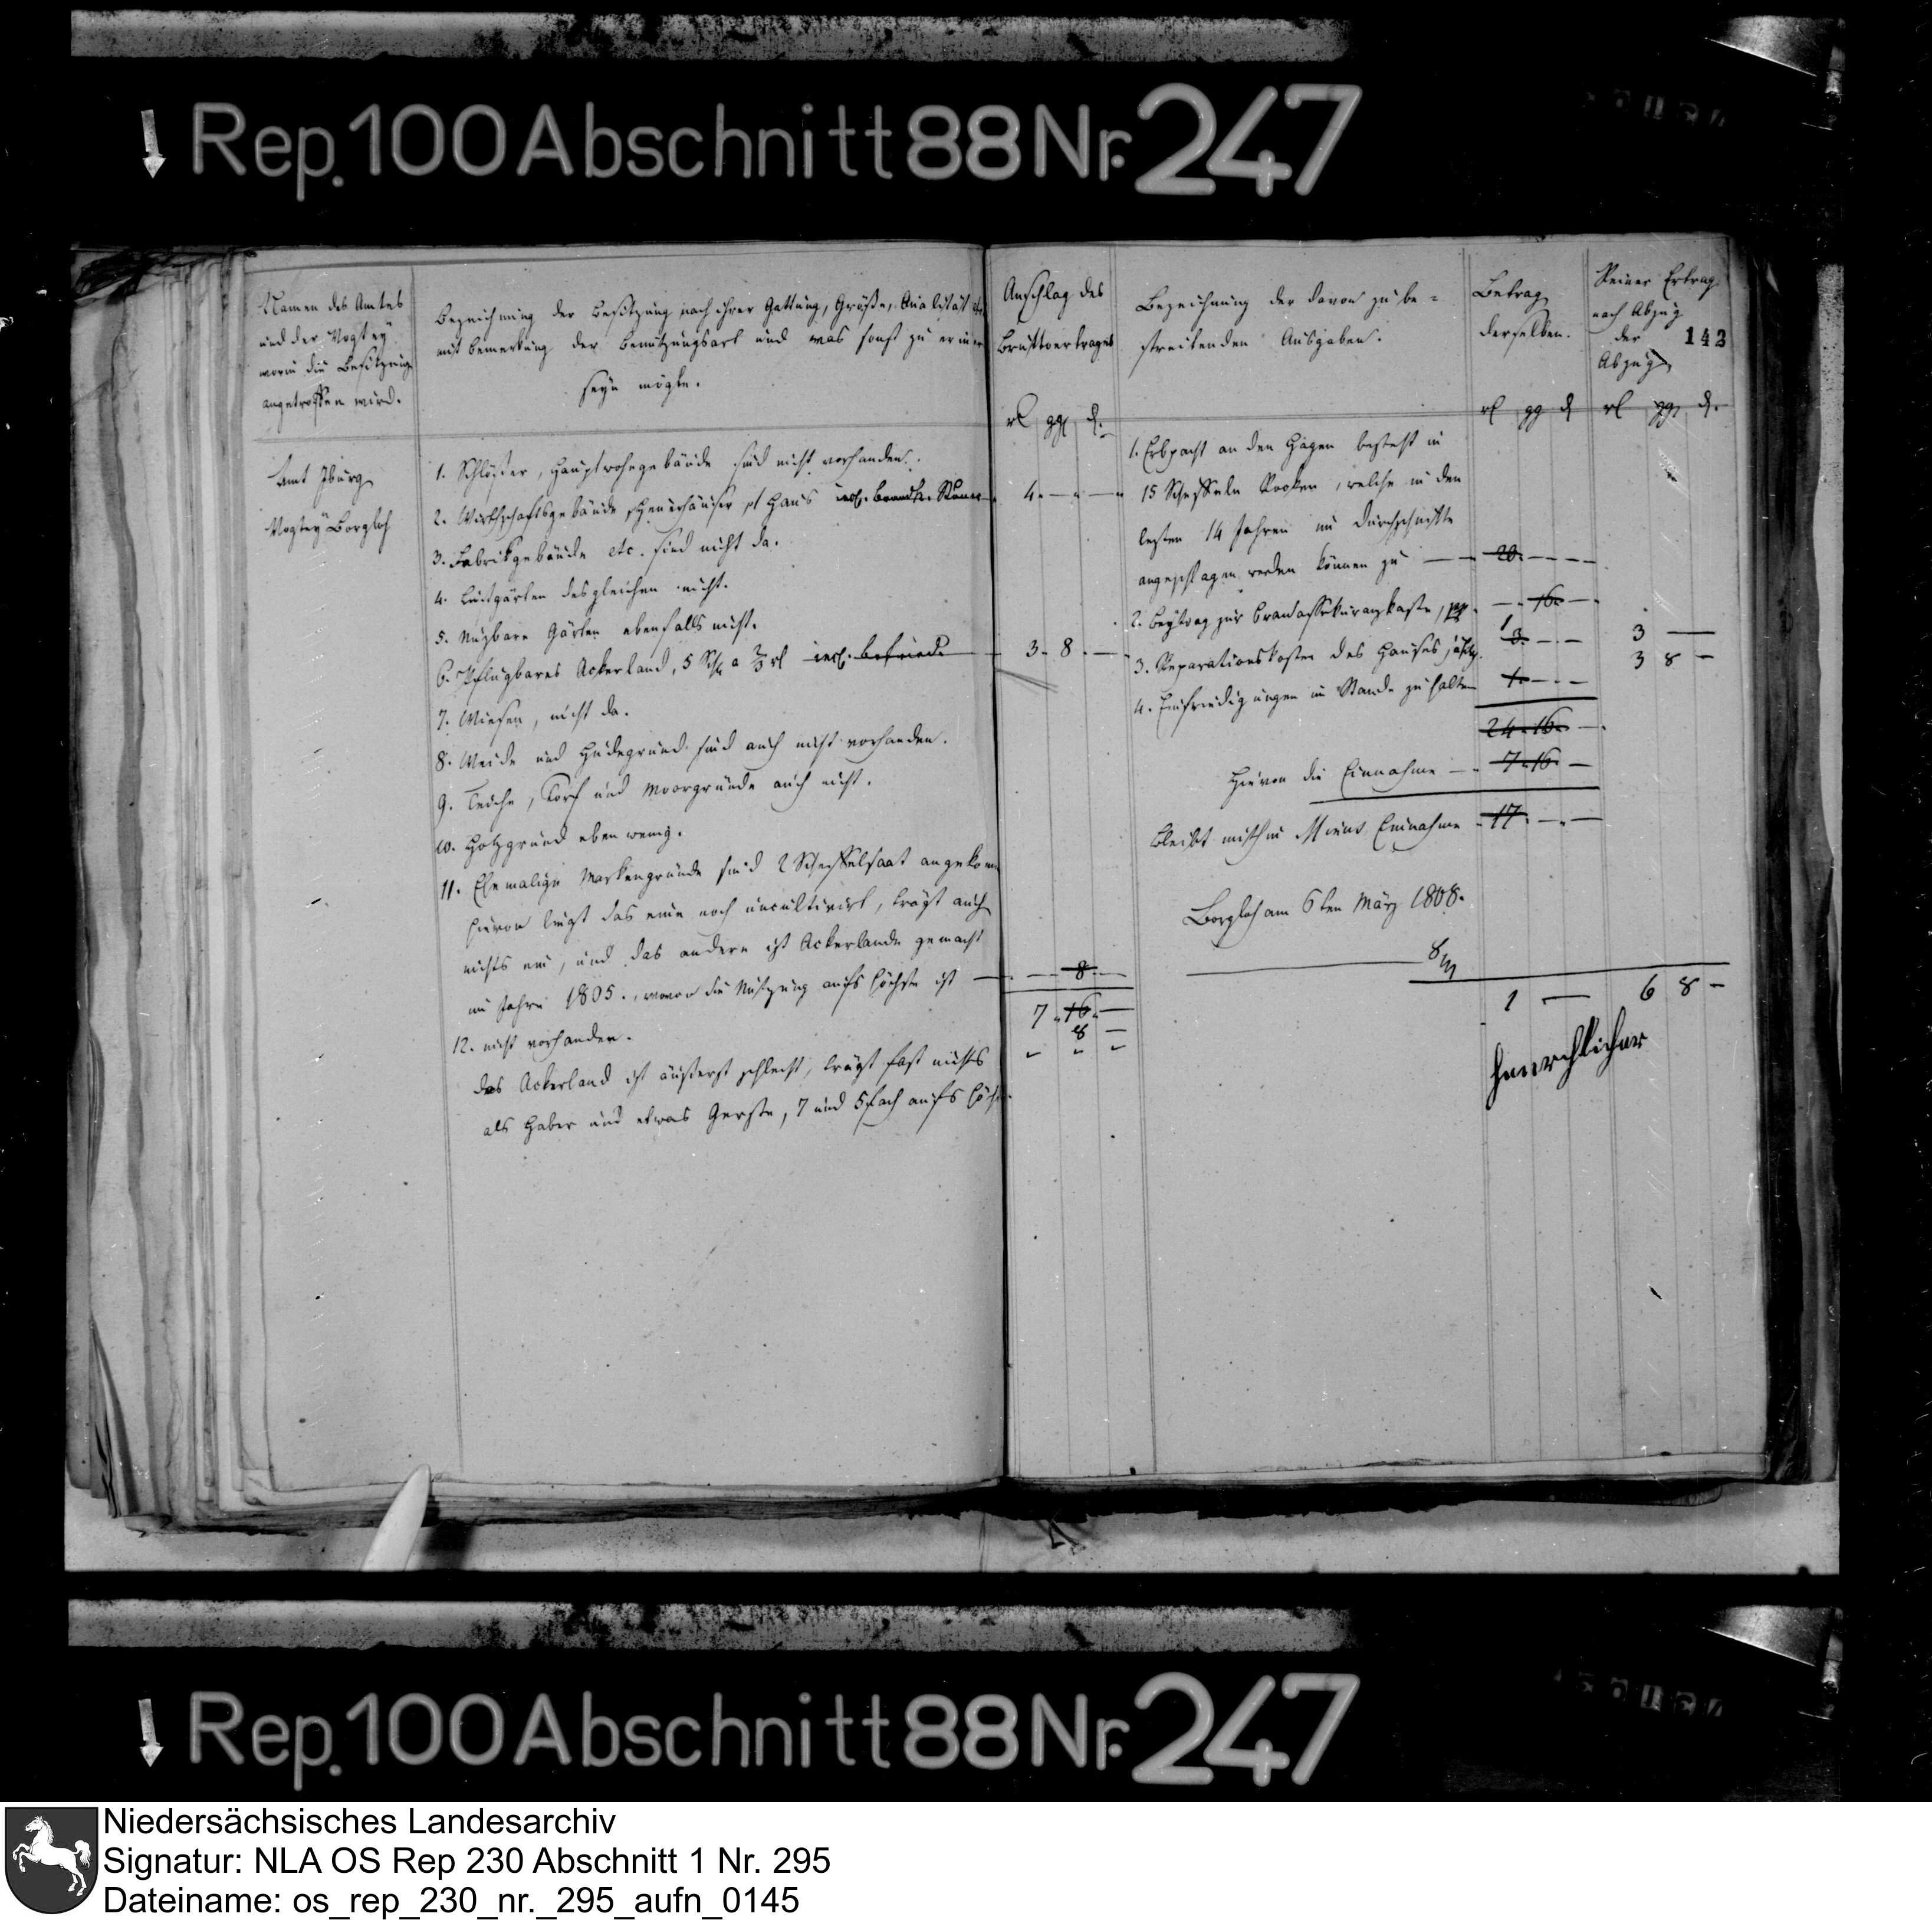 Rep. 100 Abschnitt 88 Nr. 247
Namen des Amtes
und der Vogtey
worin die Besitzung
angetroffen wird.
Bezeichnung der Besitzung nach ihrer Gattung, Größe, Qualität etc
mit Bemerkung der Benutzungsart und was sonst zu erinnern
seyn mögte.
Anschlag des
Bruttoertrages
rl ggl d.
Bezeichnung der davon zu be=
streitenden Ausgaben.
Betrag
derselben.
rl gg d
Reiner Ertrag
nach Abzug
der
Abzug
143
rl gg d.
Amt Iburg
Vogtey Borgloh
1. Schlösser, Hauptwohngebäude sind nicht vorhanden.
2. Wirthschaftsgebäude Heuerhäuser pl Haus incl.
4. — —
3. Fabrikgebäude etc. sind nicht da.
4. Lustgärten desgleichen nicht.
5. Nuzbare Gärten ebenfalls nicht.
6. Pflugbares Ackerland, 5 Schl a 2/3 rl incl. befried.
3. 8. —
7. Wiesen, nicht da.
8. Weide und Hudegrund sind auch nicht vorhanden.
9. Teiche, Torf und Moorgründe auch nicht.
10. Holzgrund eben wenig.
11. Ehemalige Markengründe sind 2 Scheffelsaat angekom
hievon liegt das eine noch uncultivirt, trägt auch
nichts ein, und das andere ist Ackerlande gemacht
im Jahre 1805., wovon die Nutzung aufs höchste ist —
— 8. —
7. 16. —
8 —
12. nicht vorhanden.
Das Ackerland ist äußerst schlecht, trägt fast nichts
als Haber und etwas Gerste, 7 und 5fach aufs höchst.
1. Erbpacht an den Hagen besteht in
15 Scheffeln Rocken, welche in den
lezten 14 Jahren im Durchschnitte
angeschlagen werden können zu — 20. — —
2. Beytrag zur Brandassekuranzkasse, — 16. —
3. Reparationskosten des Hauses jährl. 3. — —
1
3 —
3 8 —
4. Einfriedigungen im Stande zu halten 1. — —
24. 16. —
Hievon die Einnahme — 7. 16. —
Bleibt mithin Minus Einnahme 17. — —
Borgloh am 6ten März 1808.
1 — 6 8 —
Rep. 100 Abschnitt 88 Nr. 247
Niedersächsisches Landesarchiv
Signatur: NLA OS Rep 230 Abschnitt 1 Nr. 295
Dateiname: os_rep_230_nr._295_aufn_0145